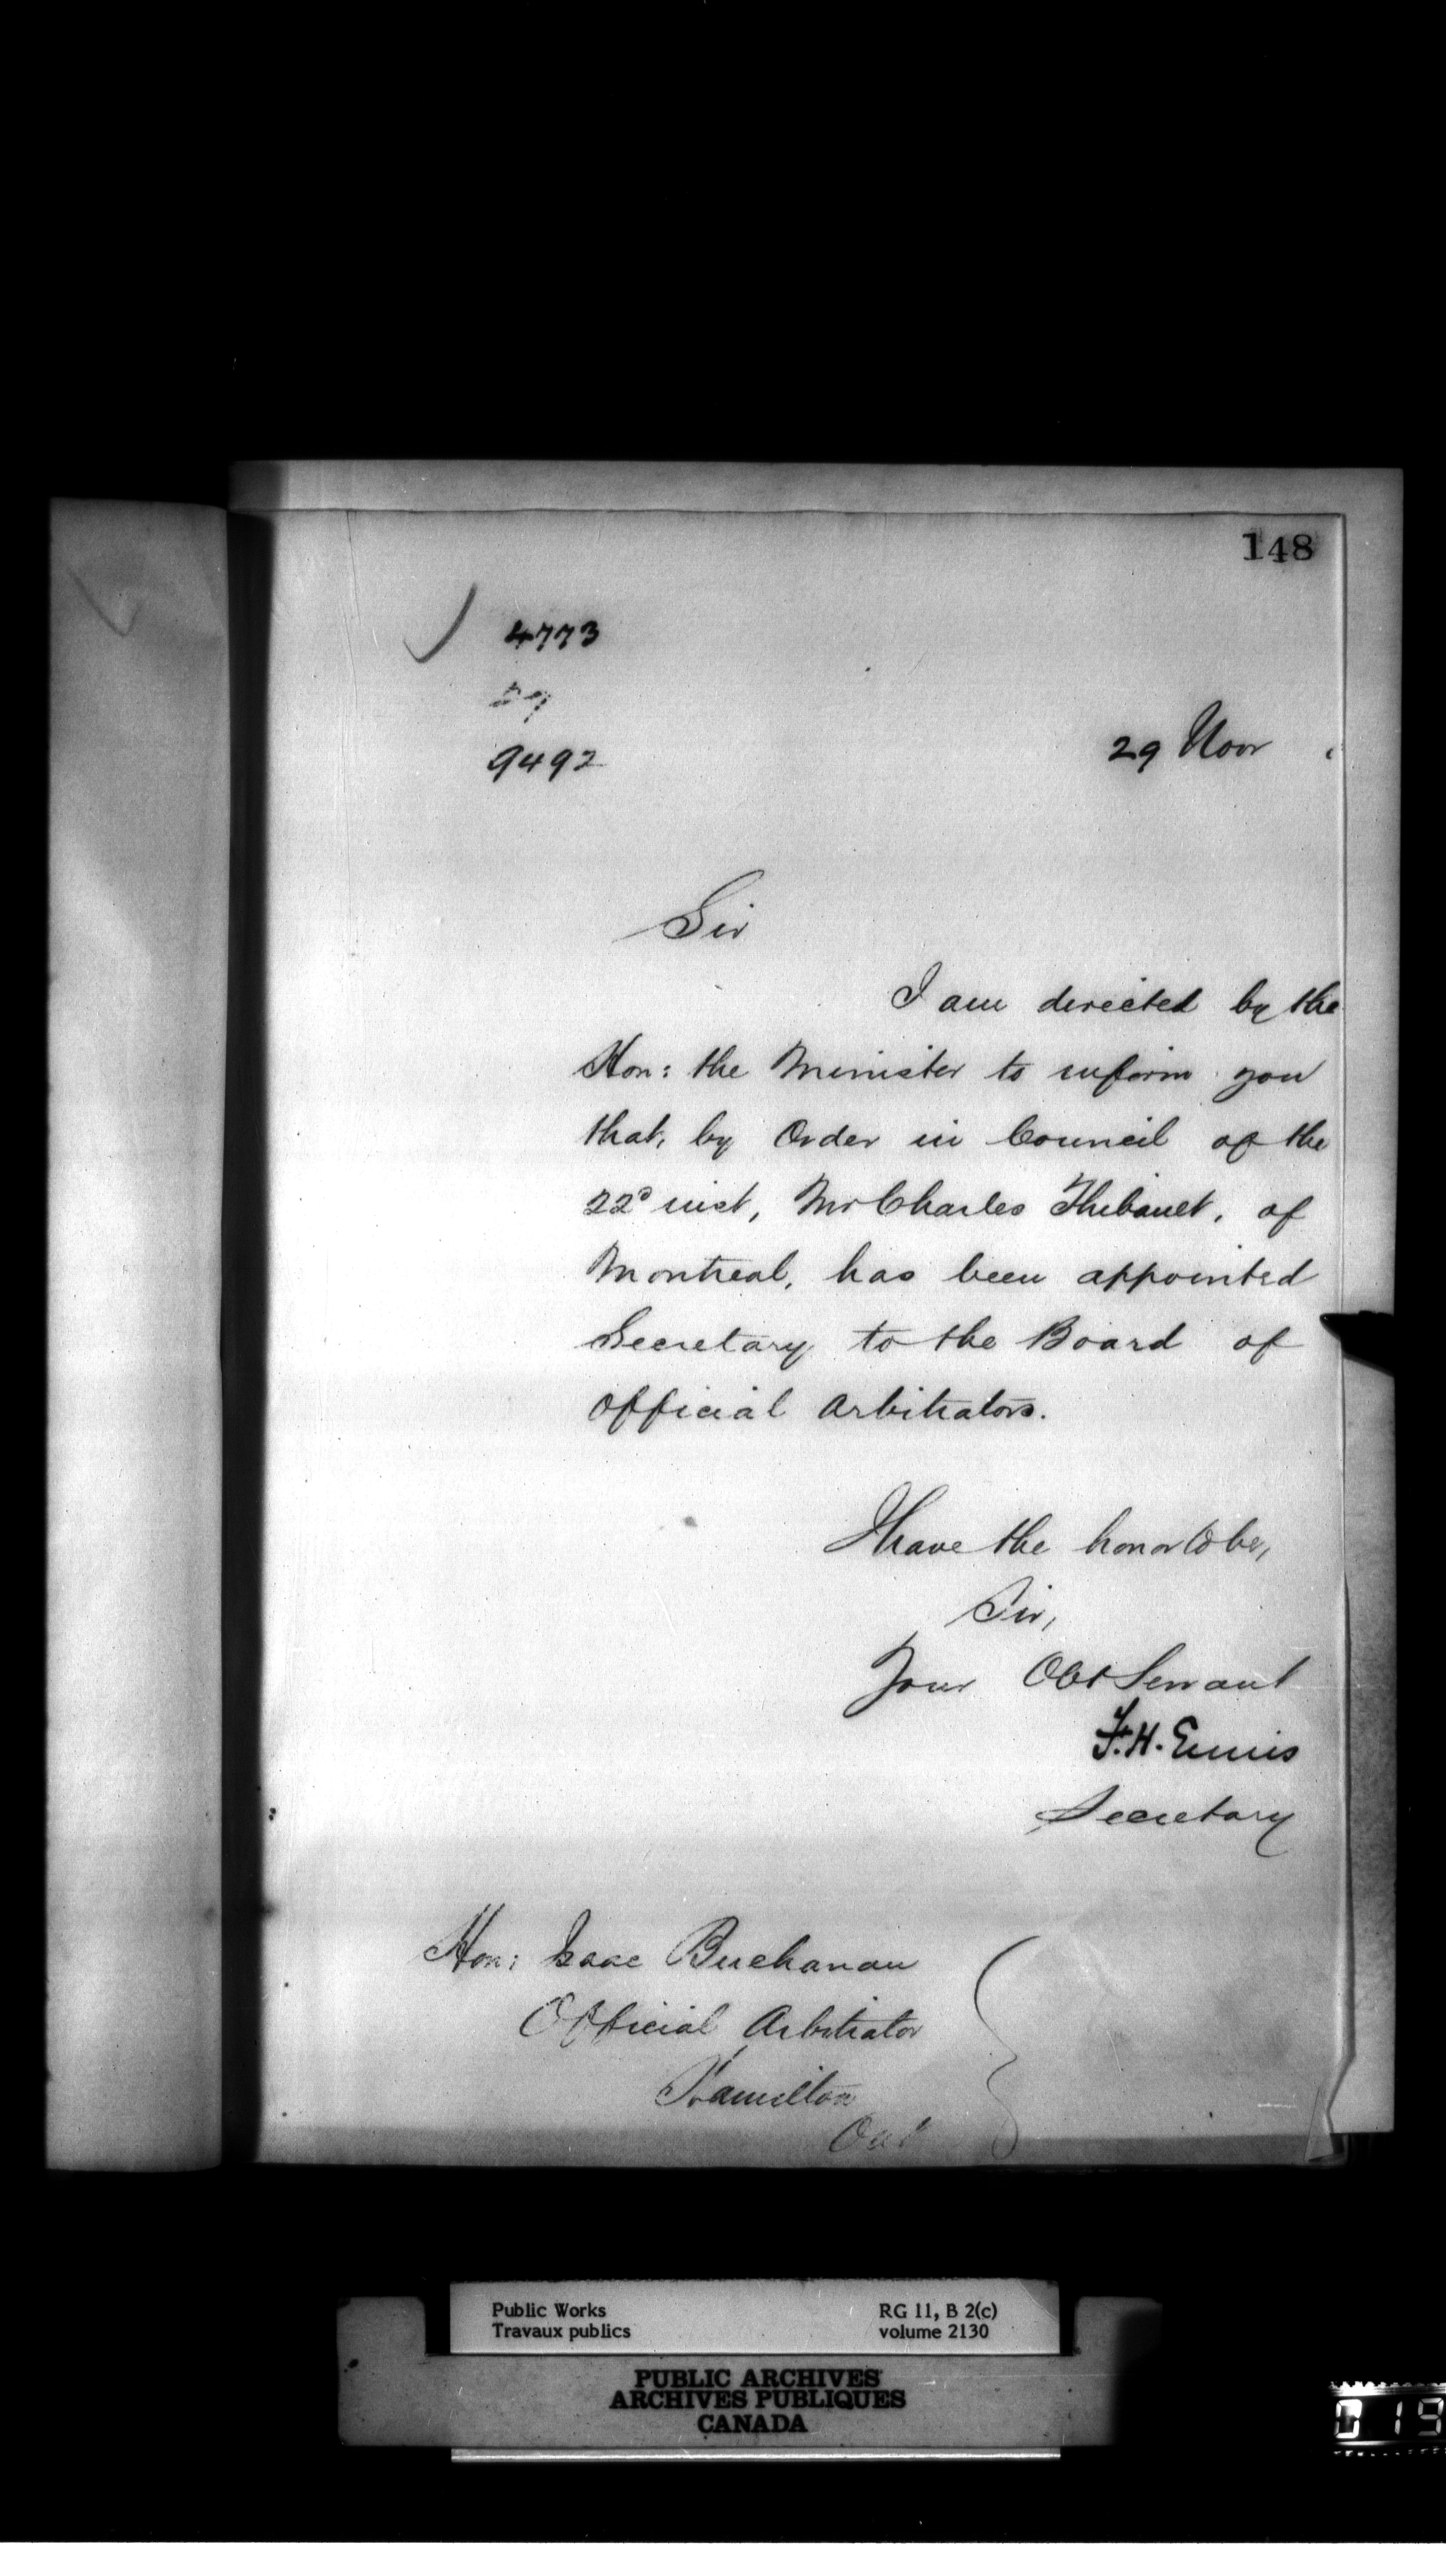 148
4773
9492
29 Novr
Sir
I am directed by the
Hon: the Minister to inform you
that, by Order in Council of the
22d inst, Mr Charles Thibault, of
Montreal, has been appointed
Secretary to the Board of
Official Arbitrators.
I have the honor to be,
Sir,
Your Obt Servant
F. H. Ennis
Secretary
Hon: Isaac Buchanan
Official Arbitrator
Hamilton
Ont
Public Works RG 11, B 2(c)
Travaux publics volume 2130
PUBLIC ARCHIVES
ARCHIVES PUBLIQUES
CANADA
019